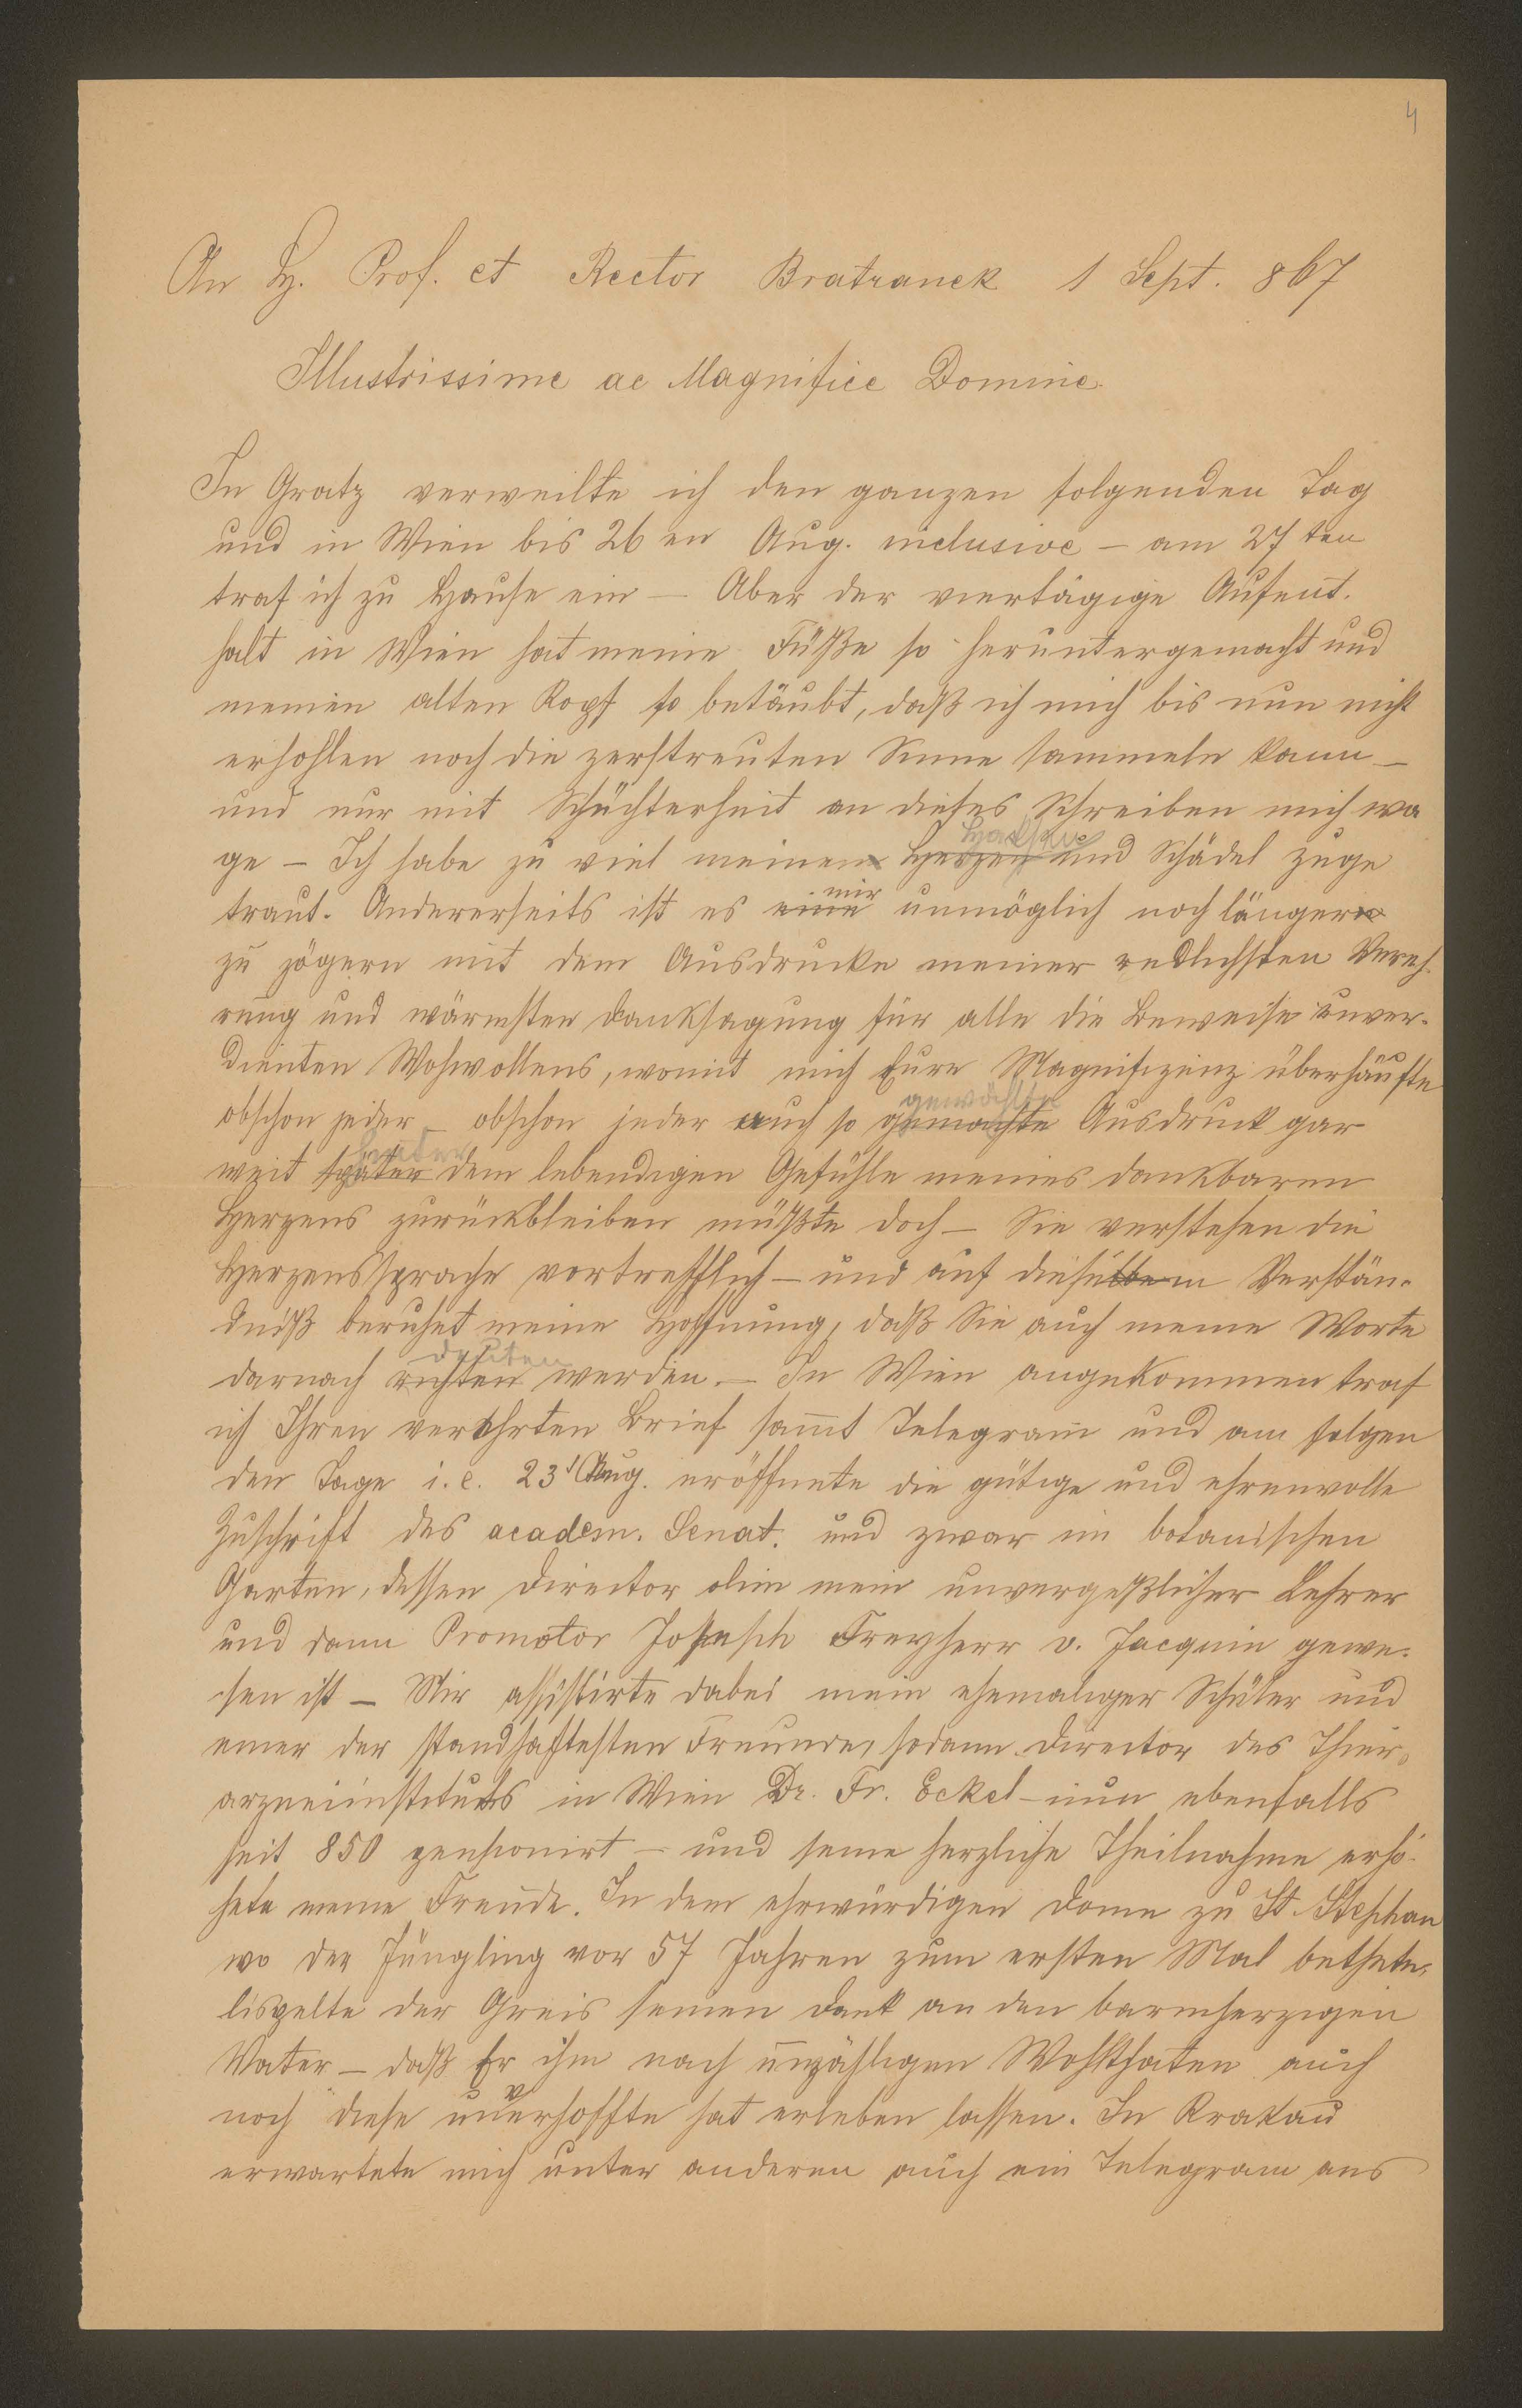 4
An H. Prof. et Rector Bratranek 1 Sept. 867
Illustrissime ac Magnifice Domine.
In Gratz verweilte ich den ganzen folgenden Tag
und in Wien bis 26 en Aug. inclusive – am 27 ten
traf ich zu Hause ein – Aber der viertägige Aufent-
halt in Wien hat meine Füße so heruntergemacht und
meinen alten Kopf so betäubt, daß ich mich bis nun nicht
erhohlen noch die zerstreuten Sinne sammeln kann –
und nur mit Schüchterheit an dieses Schreiben mich wa
ge – Ich habe zu viel meinen Herzen und Schädel zuge
traut. Andererseits ist es eine mir unmöglich noch länger
zu zögern mit dem Ausdrucke meiner redlichsten Vereh-
rung und wärmsten Danksagung für alle die Beweise unver-
dienten Wohwollens, womit mich Eure Magnifizenz überhäufte
obschon jeder – obschon jeder auch so gemachte gewählte Ausdruck gar
weit später hinter dem lebendigen Gefühle meines dankbaren
Herzens zurückbleiben müßte doch – Sie verstehen die
Herzenssprache vortrefflich – und auf diesem Verstän-
dniß beruhet meine Hoffnung, daß Sie auch meine Worte
darnach richten deuten werden. – In Wien angekommen traf
ich Ihren verehrten Brief sammt Telegram und am folgen
den Tage i. e. 23 Aug. eröffnete die gütige und ehrenvolle
Zuschrift des academ. Senat. und zwar im botanischen
Garten, dessen Director olim mein unvergeßlicher Lehrer
und dann Promotor Joseph Freyherr v. Jacquin gewe-
sen ist – Mir assistirte dabei mein ehemaliger Schüler und
einer der standhaftesten Freunde, sodann Director des Thier-
arzneiinstituts in Wien Dr. Fr. Eckel – nun ebenfalls
seit 850 pensionirt – und seine herzliche Theilnahme erhö-
hete meine Freude. In dem ehrwürdigen Dome zu St. Stephan
wo der Jüngling vor 57 Jahren zum ersten Mal bethete,
lispelte der Greis seinen Dank an den barmherzigen
Vater – daß Er ihm nach unzähligen Wohlthaten auch
noch diese unverhoffte hat erleben lassen. In Krakau
erwartete mich unter anderen auch ein Telegram aus